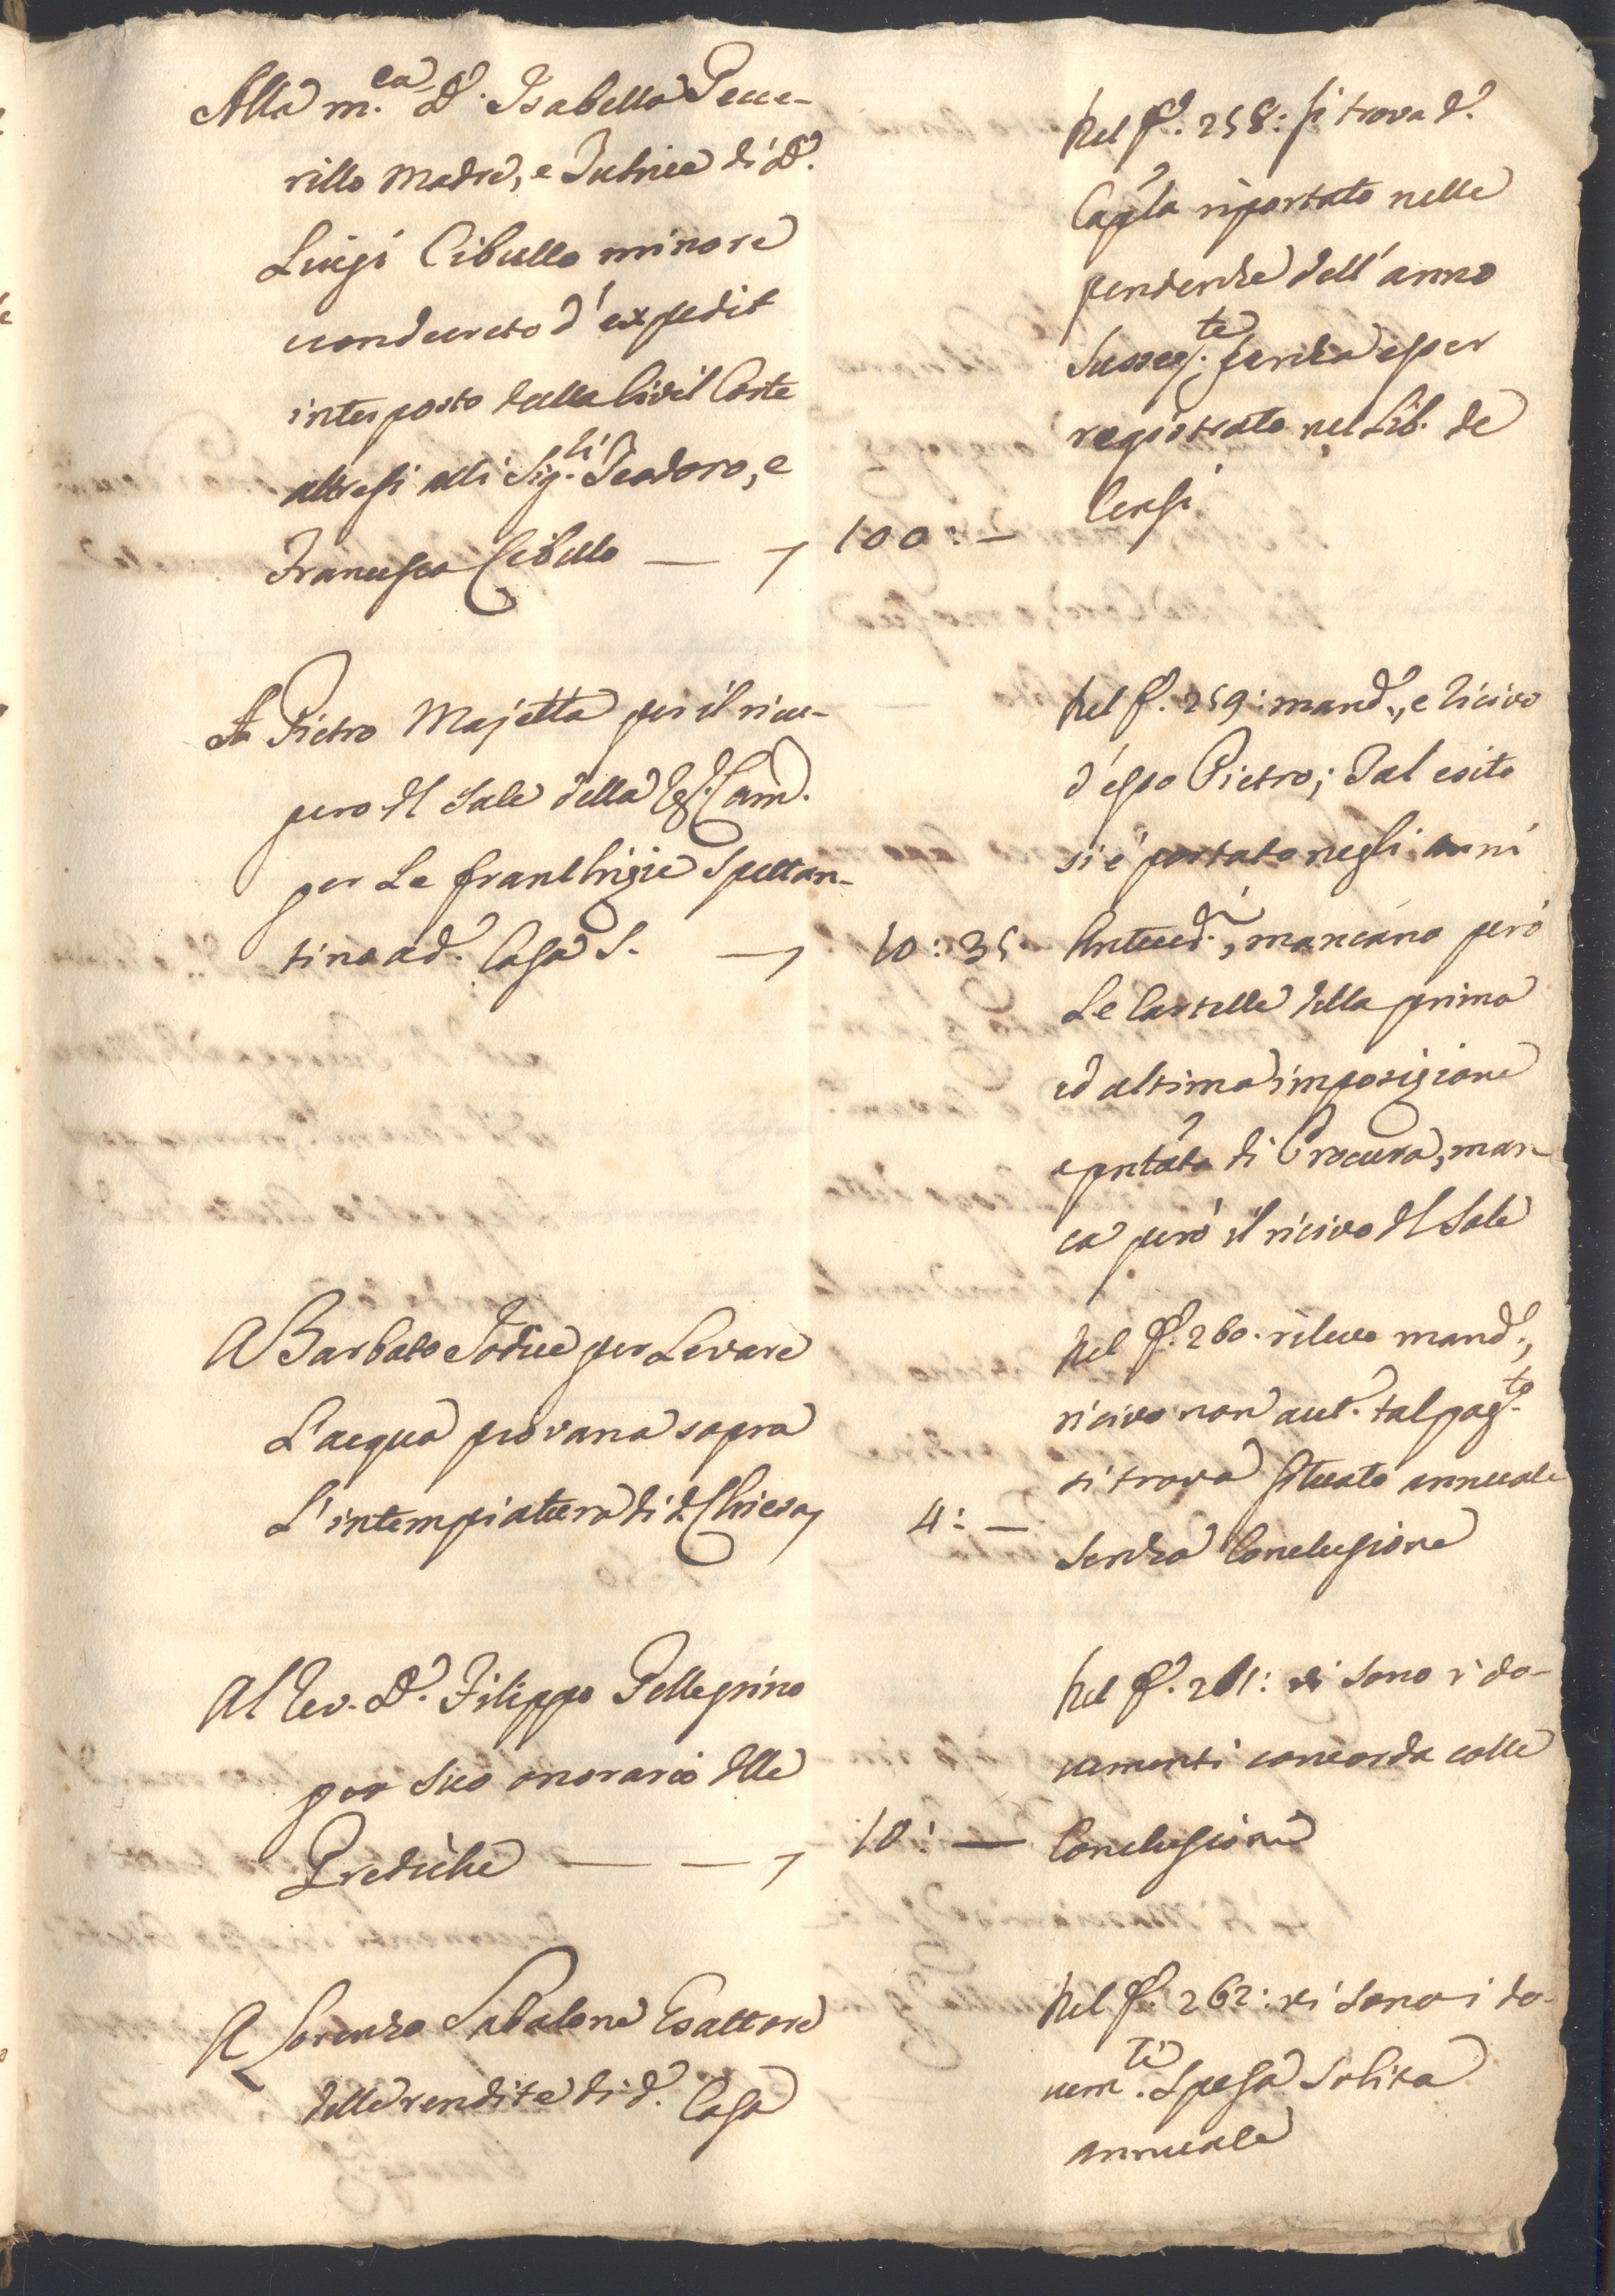 Alla m.ca D. Isabella Pecce-
rillo Madre, e Tutrice di D.
Luigi Cibullo minore
con decreto d'expedit
interposto dalla Civil Corte
altresi alli Sig.ri Teodoro, e
Francesco Cibullo — 100: —
Nel f. 258: si trova d.
Cap.la riportato nelle
pendenze dell'anno
Susseg.te senza esser
registrato nel Lib. de
Censi
A Pietro Majetta per il ricu-
pero del Sale della Reg. Cam.
per Le franchigie Spettan-
tino a d. Casa S. — 10: 35
Nel f. 259: mand., e ricivo
d'esso Pietro; Tal esito
si è portato negli anni
Anteced.ti, mancano però
Le Cartelle della prima
ed altima imposizione
e pntata di Procura, man
ca però il ricivo del Sale
A Barbato Jodice per Levare
L'acqua piovana sopra
L'intempiatura di d. Chiesa 4: —
Nel f. 260. rilevo mand.,
ricivo non aut. tal pag.to
si trova situato annuale
Senza Conclusione
Al Rev. D. Filippo Pellegrino
per Suo onorario delle
Prediche — — 10: —
Nel f. 261: vi sono i do-
cumenti concorda colle
Conclusioni
A Lorenzo Sabalone Esattore
delle rendite di d. Casa
Nel f. 262: vi sono i do-
cum.ti Spesa Solita
annuale